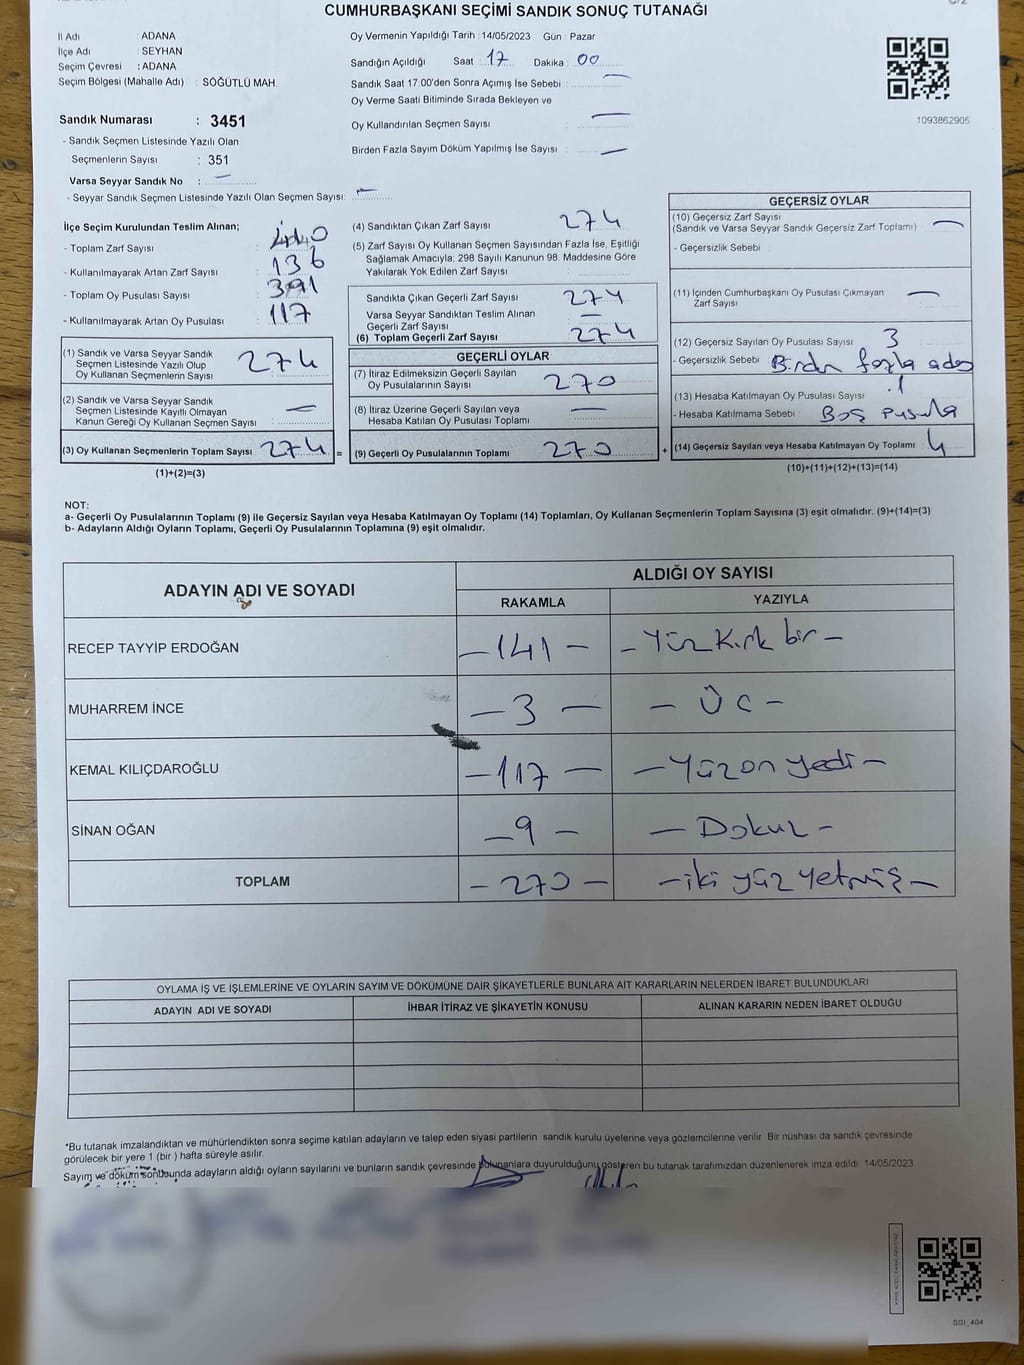 CUMHURBAŞKANI SEÇİMİ SANDIK SONUÇ TUTANAĞI
İl Adı : ADANA
İlçe Adı : SEYHAN
Seçim Çevresi : ADANA
Seçim Bölgesi (Mahalle Adı) : SÖĞÜTLÜ MAH.
Sandık Numarası : 3451
- Sandık Seçmen Listesinde Yazılı Olan
Seçmenlerin Sayısı : 351
Varsa Seyyar Sandık No : —
- Seyyar Sandık Seçmen Listesinde Yazılı Olan Seçmen Sayısı: —
Oy Vermenin Yapıldığı Tarih : 14/05/2023 Gün : Pazar
Sandığın Açıldığı Saat : 17 Dakika : 00
Sandık Saat 17:00'den Sonra Açımış İse Sebebi : —
Oy Verme Saati Bitiminde Sırada Bekleyen ve
Oy Kullandırılan Seçmen Sayısı : —
Birden Fazla Sayım Döküm Yapılmış İse Sayısı : —
1093862905
İlçe Seçim Kurulundan Teslim Alınan;
- Toplam Zarf Sayısı :
- Kullanılmayarak Artan Zarf Sayısı : 136
- Toplam Oy Pusulası Sayısı : 391
- Kullanılmayarak Artan Oy Pusulası : 117
(1) Sandık ve Varsa Seyyar Sandık
Seçmen Listesinde Yazılı Olup
Oy Kullanan Seçmenlerin Sayısı : 274
(2) Sandık ve Varsa Seyyar Sandık
Seçmen Listesinde Kayıtlı Olmayan
Kanun Gereği Oy Kullanan Seçmen Sayısı : —
(3) Oy Kullanan Seçmenlerin Toplam Sayısı : 274 =
(1)+(2)=(3)
(4) Sandıktan Çıkan Zarf Sayısı : 274
(5) Zarf Sayısı Oy Kullanan Seçmen Sayısından Fazla İse, Eşitliği
Sağlamak Amacıyla; 298 Sayılı Kanunun 98. Maddesine Göre
Yakılarak Yok Edilen Zarf Sayısı :
Sandıkta Çıkan Geçerli Zarf Sayısı : 274
Varsa Seyyar Sandıktan Teslim Alınan
Geçerli Zarf Sayısı : —
(6) Toplam Geçerli Zarf Sayısı : 274
GEÇERLİ OYLAR
(7) İtiraz Edilmeksizin Geçerli Sayılan
Oy Pusulalarının Sayısı : 270
(8) İtiraz Üzerine Geçerli Sayılan veya
Hesaba Katılan Oy Pusulası Toplamı : —
(9) Geçerli Oy Pusulalarının Toplamı : 270 +
GEÇERSİZ OYLAR
(10) Geçersiz Zarf Sayısı
(Sandık ve Varsa Seyyar Sandık Geçersiz Zarf Toplamı) : —
- Geçersizlik Sebebi :
(11) İçinden Cumhurbaşkanı Oy Pusulası Çıkmayan
Zarf Sayısı : —
(12) Geçersiz Sayılan Oy Pusulası Sayısı : 3
- Geçersizlik Sebebi : Birden fazla aday
(13) Hesaba Katılmayan Oy Pusulası Sayısı : 1
- Hesaba Katılmama Sebebi : Boş pusula
(14) Geçersiz Sayılan veya Hesaba Katılmayan Oy Toplamı : 4
(10)+(11)+(12)+(13)=(14)
NOT:
a- Geçerli Oy Pusulalarının Toplamı (9) ile Geçersiz Sayılan veya Hesaba Katılmayan Oy Toplamı (14) Toplamları, Oy Kullanan Seçmenlerin Toplam Sayısına (3) eşit olmalıdır. (9)+(14)=(3)
b- Adayların Aldığı Oyların Toplamı, Geçerli Oy Pusulalarının Toplamına (9) eşit olmalıdır.
ADAYIN ADI VE SOYADI
ALDIĞI OY SAYISI
RAKAMLA YAZIYLA
RECEP TAYYİP ERDOĞAN — 141 — — Yüz Kırk bir —
MUHARREM İNCE — 3 — — ÜC —
KEMAL KILIÇDAROĞLU — 117 — — Yüz on yedi —
SİNAN OĞAN — 9 — — Dokuz —
TOPLAM — 270 — — iki yüz yetmiş —
OYLAMA İŞ VE İŞLEMLERİNE VE OYLARIN SAYIM VE DÖKÜMÜNE DAİR ŞİKAYETLERLE BUNLARA AİT KARARLARIN NELERDEN İBARET BULUNDUKLARI
ADAYIN ADI VE SOYADI İHBAR İTİRAZ VE ŞİKAYETİN KONUSU ALINAN KARARIN NEDEN İBARET OLDUĞU
*Bu tutanak imzalandıktan ve mühürlendikten sonra seçime katılan adayların ve talep eden siyasi partilerin sandık kurulu üyelerine veya gözlemcilerine verilir. Bir nüshası da sandık çevresinde
görülecek bir yere 1 (bir ) hafta süreyle asılır.
Sayım ve döküm sonucunda adayların aldığı oyların sayılarını ve bunların sandık çevresinde bulunanlara duyurulduğunu gösteren bu tutanak tarafımızdan düzenlenerek imza edildi. 14/05/2023
SSI_404